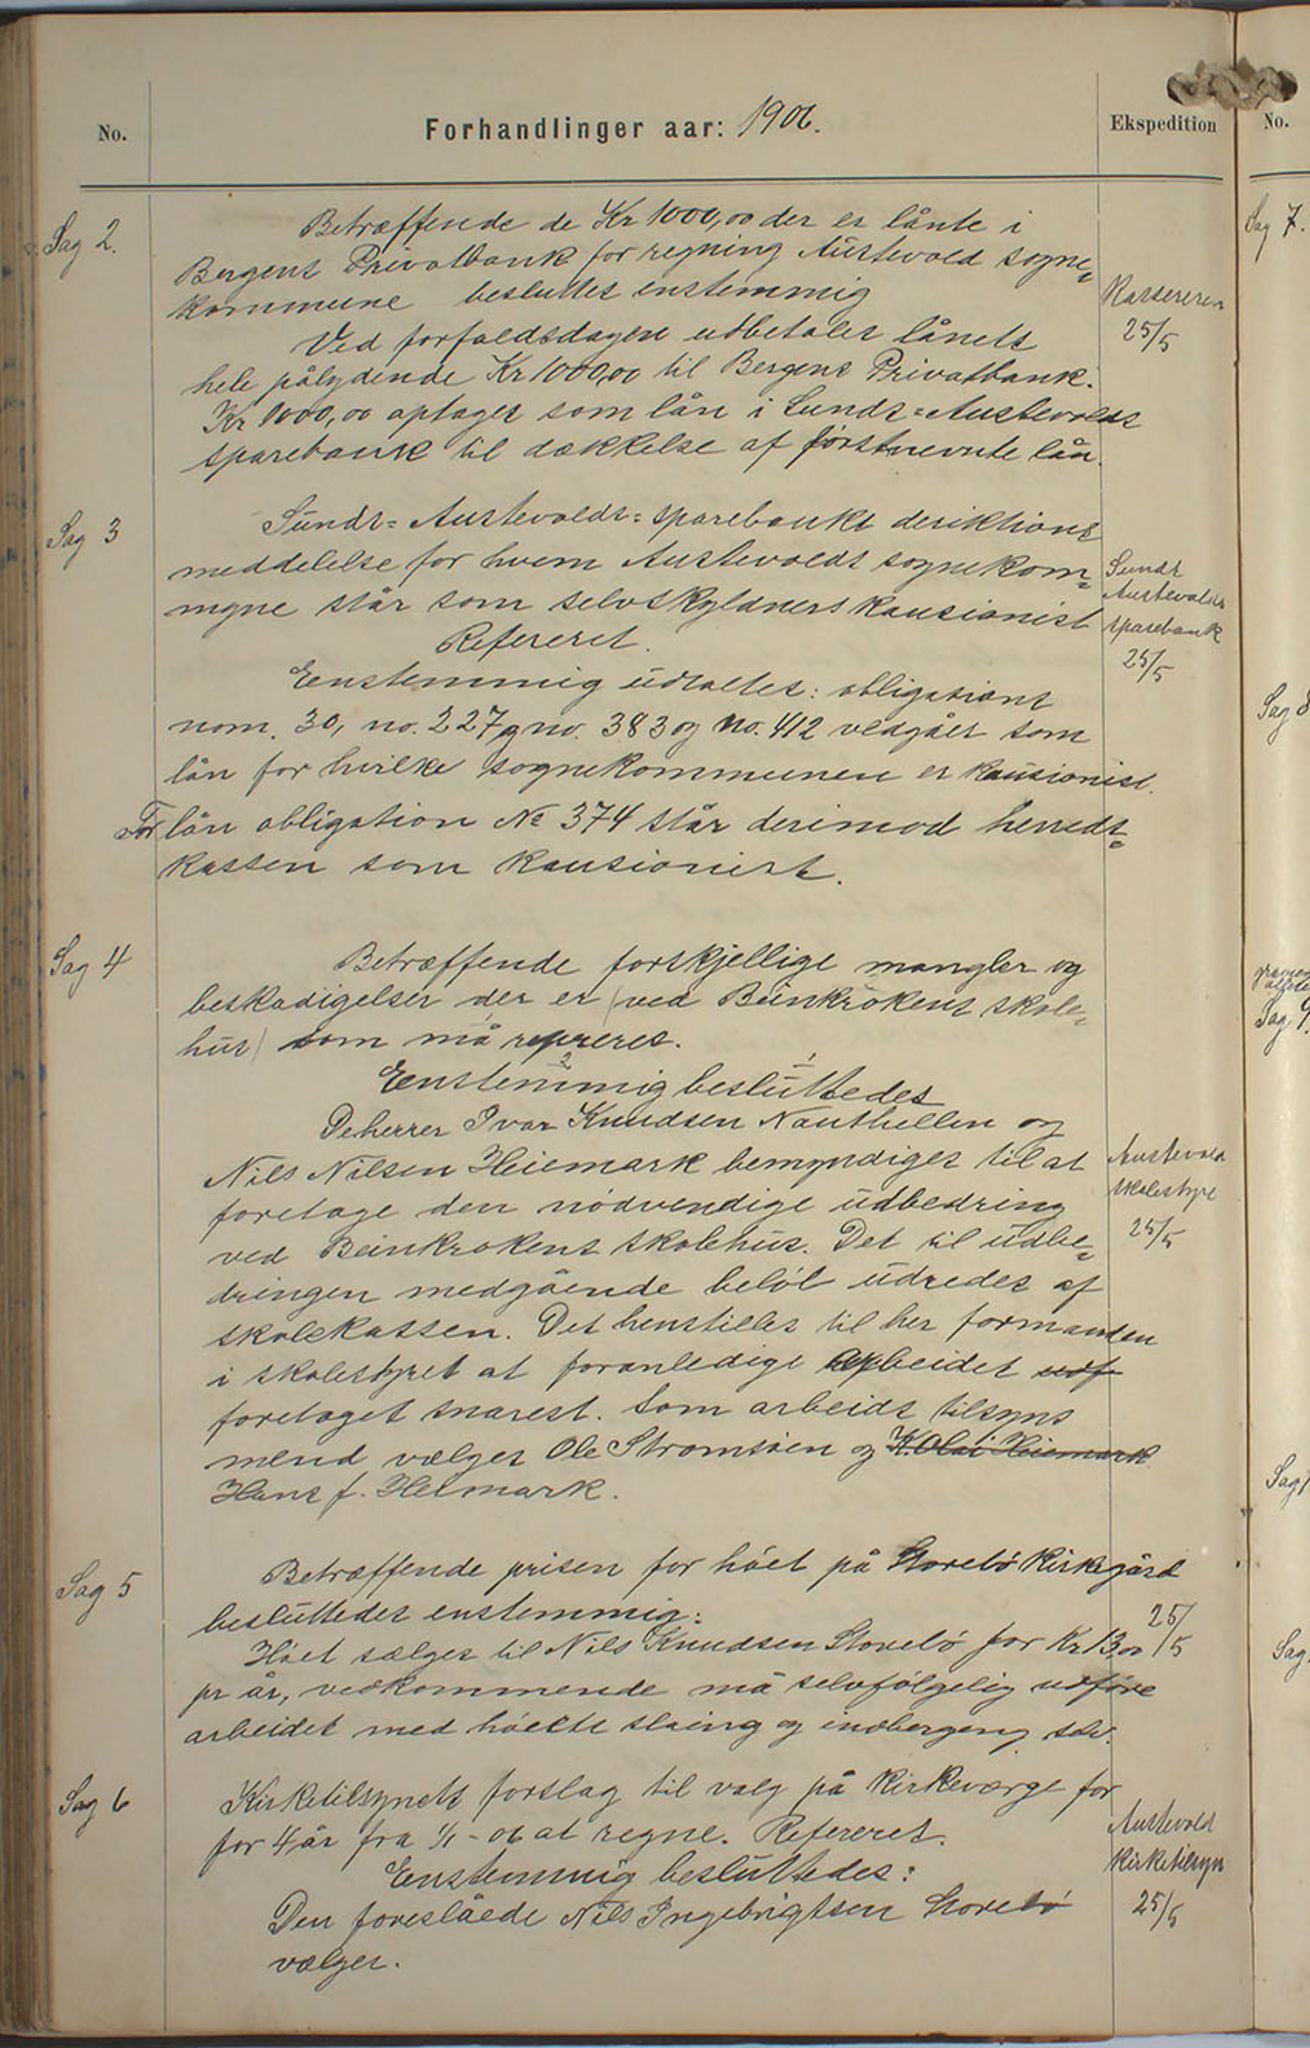 No.
Forhandlinger aar: 1906.
Ekspedition
No.
Sag 2.
Betræffende de Kr 1000,00 der er lånte i
Bergens Privatbank for regning Austevold sogne=
kommune besluttes enstemmig
Ved forfaldsdagen udbetales lånets
hele pålydende Kr 1000,00 til Bergens Privatbank.
Kr 1000,00 optages som lån i Sunds=Austevolds
sparebank til dækkelse af førstnevnte lån.
Kassereren
25/5
Sag 3
Sunds=Austevolds=sparebanks direktions
meddelelse for hvem Austevolds sognekom=
mune står som selvskyldnerskausionist
Refereret.
Eenstemmig udtaltes: obligasions
nom. 30, no. 227 og no. 383 og no. 412 vedgåes som
lån for hvilke sognekommunen er kausionist.
For lån obligation № 374 står derimod herreds=
kassen som kausionist.
Sunds
Austevolds
sparebank
25/5
Sag 4
Betræffende forskjellige mangler og
beskadigelser der er (ved Beinkrokens skole=
hus) som må repreres.
Eenstemmig besluttedes
De herrer Ivar Knudsen Nauthellen og
Nils Nilsen Heiemark bemyndiges til at
foretage den nødvendige udbedring
ved Beinkrokens skolehus. Det til udbe=
dringen medgående beløb udredes af
skolekassen. Det henstilles til her formanden
i skolestyret at foranledige arbeidet udf
foretaget snarest. Som arbeids tilsyns
mend vælges Ole Stromsøen og K. Olai Heiemark
Hans J. Heimark.
Austevold
skolestyre
25/5
Sag 5
Betræffende prisen for høet på Storebø Kirkegård
besluttedes enstemmig:
Høet sælges til Nils Knudsen Storebø for Kr 13,00
pr år, vedkommende må selvfølgelig udføre
arbeidet med høets slaing og indbergeng selv.
25/5
Sag 6
Kirketilsynets forslag til valg på Kirkeværge for
for 4 år fra 1/1 - 06 at regne. Refereret.
Enstemmig besluttedes:
Den foreslåede Nils Ingebrigtsen Storebø
vælges.
Austevold
Kirketilsyn
25/5
Sag 7.
Sag 8
Sag 9.
Sag
Sag